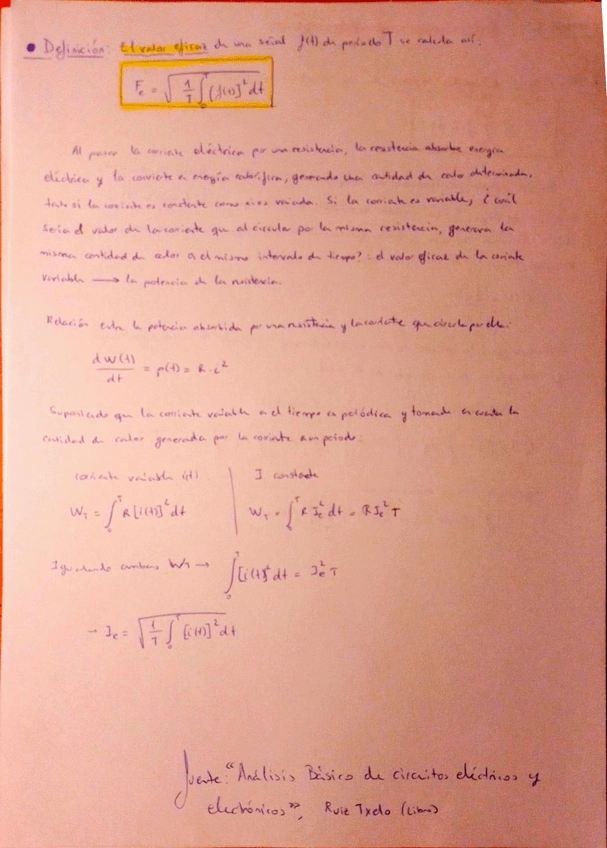 • Definición: El valor eficaz de una señal f(t) de periodo T se calcula así:
Fe = √(1/T ∫₀ᵀ [f(t)]² dt)
Al pasar la corriente eléctrica por una resistencia, la resistencia absorbe energía
eléctrica y la convierte en energía calorífica, generando una cantidad de calor determinada,
tanto si la corriente es constante como si es variada. Si la corriente es variable, ¿cuál
sería el valor de la corriente que al circular por la misma resistencia, genera la
misma cantidad de calor en el mismo intervalo de tiempo?: el valor eficaz de la corriente
variable → la potencia de la resistencia.
Relación entre la potencia absorbida por una resistencia y la corriente que circula por ella:
dW(t)/dt = p(t) = R · i²
Suponiendo que la corriente variable en el tiempo es periódica y tomando en cuenta la
cantidad de calor generada por la corriente en un periodo:
corriente variable i(t) | I constante
W_T = ∫₀ᵀ R[i(t)]² dt | W_T = ∫₀ᵀ R Ie² dt = R Ie² T
Igualando ambas W_T → ∫₀ᵀ [i(t)]² dt = Ie² T
→ Ie = √(1/T ∫₀ᵀ [i(t)]² dt)
fuente: "Análisis Básico de circuitos eléctricos y
electrónicos", Ruiz Txelo (Libro)